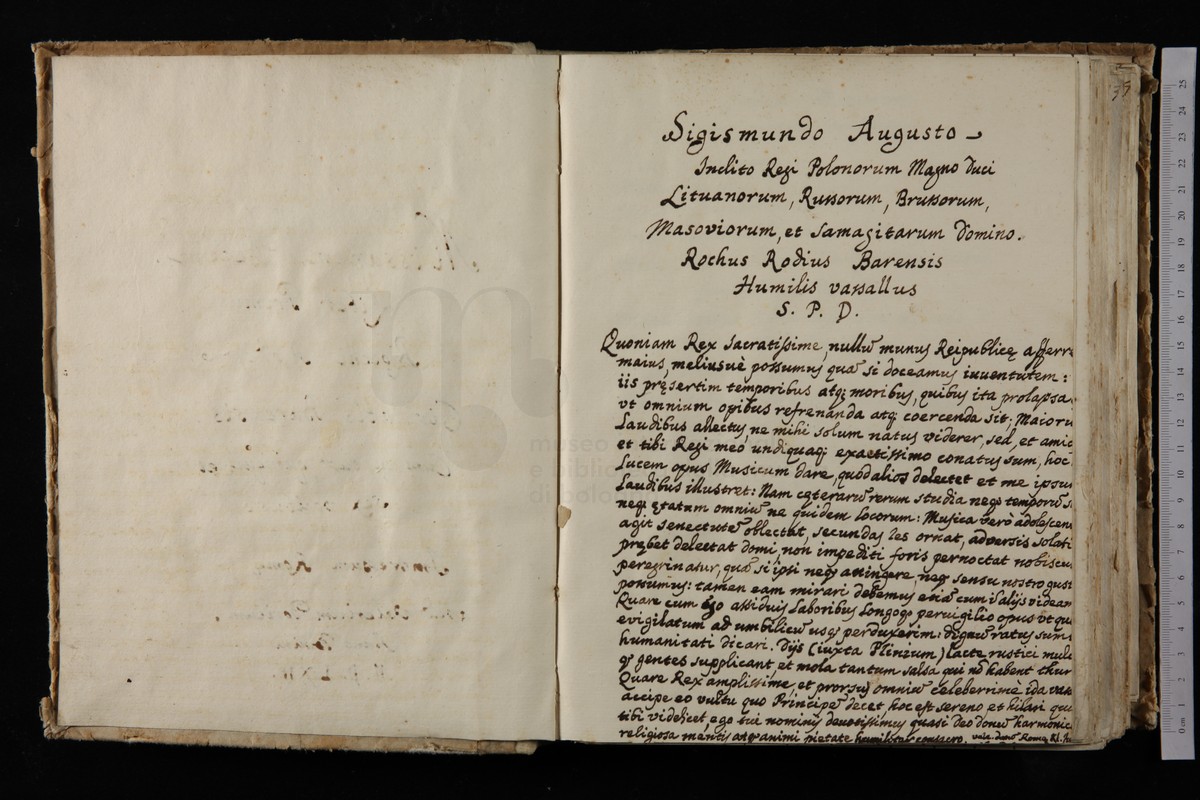 35
Sigismundo Augusto
Inclito Regi Polonorum Magno Duci
Lituanorum, Russorum, Brussorum,
Masoviorum, et Samagitarum Domino.
Rochus Rodius Barensis
Humilis vassallus
S. P. D.
Quoniam Rex Sacratissime, nullũ munus Reipublicę afferr
maius, meliusuè possumus quã si doceamus iuuentutem:
iis pręsertim temporibus atq; moribus, quibus ita prolapsa
vt omnium opibus refrenanda atq; coercenda sit: Maioru
Laudibus allectus, ne mihi solum natus viderer, sed, et amic
et tibi Regi meo undiquaq; exactissimo conatus sum, hoc
Lucem opus Musicum dare, quod alios delectet et me ipsu
Laudibus illustret: Nam cęterarũ rerum studia neq; temporũ s
neq; ętatum omniũ ne quidem locorum: Musica verò adolescen
agit senectutẽ oblectat, secundas res ornat, adversis solati
prębet delectat domi, non impediti foris pernoctat nobiscu
peregrinatur, quã si ipsi neq; attingere neq; sensu nostro gust
possumus: tamen eam mirari debemus etiã cum in alijs videam
Quare cum ego assiduis Laboribus Longoq; peruigilio opus vt qu
evigilatum ad umbilicũ usq; perduxerim: dignũ ratus sum
humanitati dicari. Dijs (iuxta Plinium) lacte rustici mul
q; gentes supplicant et mola tantum salsa qui nõ habent thur
Quare Rex amplissime, et prorsus omniũ celeberrimè
accipe eo vultu quo Principẽ decet, hoc est sereno et hilari qu
tibi videlicet, ego tui nominis deuotissimus quasi Deo donũ harmonic
religiosa mentis atq; animi pietate humiliter consacro. Vale. Datũ Romę
museo
e biblio
di bologna